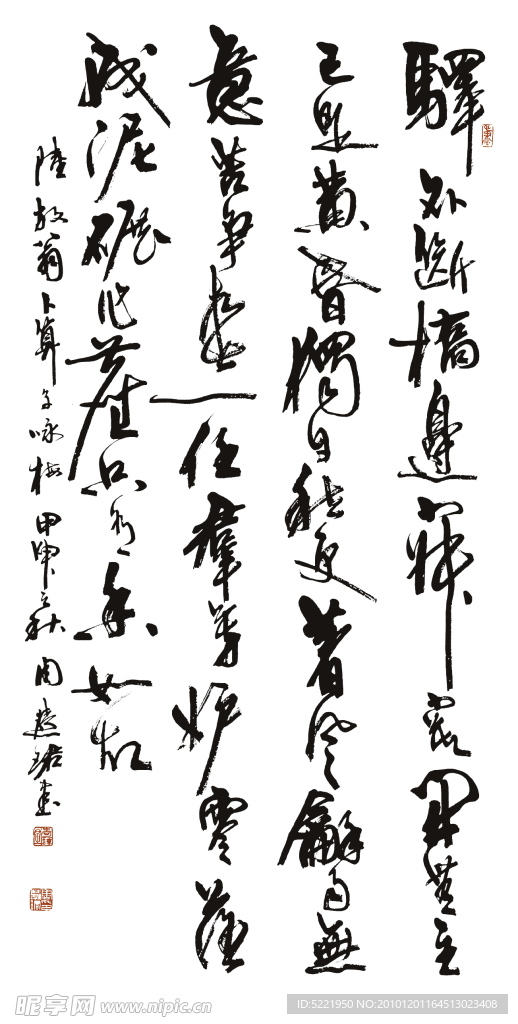 驛外斷橋邊寂寞開無主
已是黄昏獨自愁更著風龢雨無
意苦爭春一任羣芳妒零落
成泥碾作塵只有香如故
陸放翁卜算子咏梅甲申之秋周慧珺書
昵享网 www.nipic.cn
ID:5221950 NO:20101201164513023408